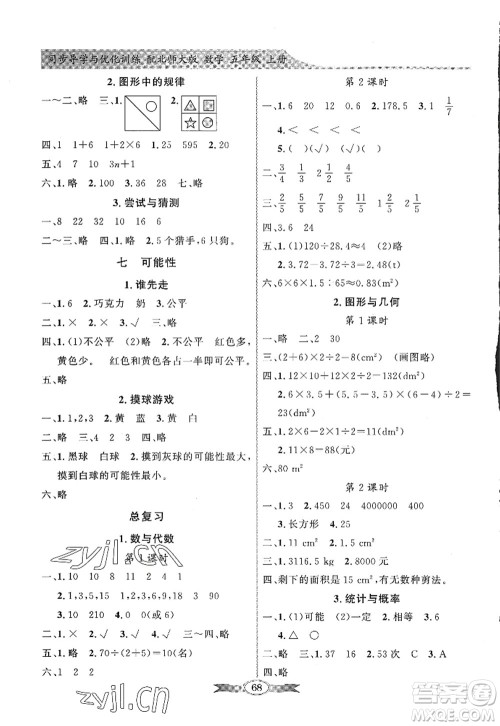 同步导学与优化训练 配北师大版 数学 五年级 上册
2.图形中的规律
一~二、略 三、
四、1 1+6 1+12 1.25 595 20
五、4 7 10 3n+1
六、1.略 2.100 3.略
3.尝试与猜测
一、8 22 32 10 16
二~三、略 四、5个猎手,6只狗。
七 可能性
1.谁先走
一、1.6 2.巧克力 奶 3.公平
二、略 三、1.× 2.√ 3.×
四、(1)不公平 (2)公平 (3)不公平 红色多,
黄色少。 红色和黄色各占一半即可公平。
五、略
2.摸球游戏
一、1.1,2,3 2.黄 蓝 3.黄 白
二~四、略
五、1.黑球 白球 2.摸到灰球的可能性
与摸到白球的可能性一样。
六、略
总复习
1.数与代数
第1课时
一、10
2.1,2,3,5,6,10,15,30
3.10 210 4.0(或6)
二、略 三、1.× 2.× 3.√
四、略 五、2.70÷(2+5)=10(名)
六、1 2 2
第2课时
一、1.6 20 2.178.5 3.1 1/7
4.< < < <
5.(√)(√)
二、3/4 1/4 2 1/4 三、2/5 3/5 2 2/5
四、3.6 24
五、1.(1)120÷28.4≈4 (2)略
2.3.72-3.72÷3=2.48(t)
六、6×6×1.5÷6=9(dm)
2.图形与几何
第1课时
一、略 二、2 30
三、1.2×4÷2=4(cm²) (画图略)
四、1.(12+8)×8÷2=80(cm²)
2.6×3.5+(3.5+6-7.5)×2÷2=
23(dm²)
五、1.2×6-2×2÷2=10(m²)
2.11×8=88(m²)
六、80 m²
第2课时
一、1.3 2.450 24 4000000 400
3.长方形 4.11 cm²
二~三、略
四、1.3116.5 kg 2.8000 cm²
五、1.15 cm² 2.15 cm²
六、剩下的面积是15 cm²,有无数种剪法。
3.统计与概率
一、1.(1)可能 (2)一定 2.(1)6
4.△ ○
二、略 三、1.× 2.× 3.√
四、略
68
zyjl.cn